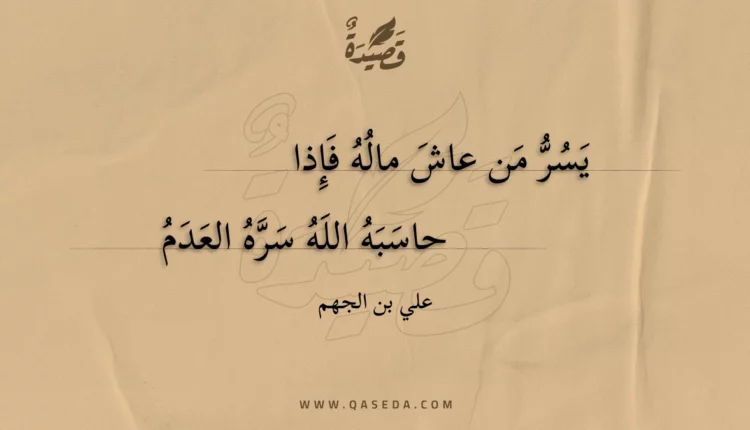 قَصِيْدَةٌ
يَسُرُّ مَن عاشَ مالُهُ فَإِذا
حاسَبَهُ اللَهُ سَرَّهُ العَدَمُ
علي بن الجهم
WWW.QASEDA.COM